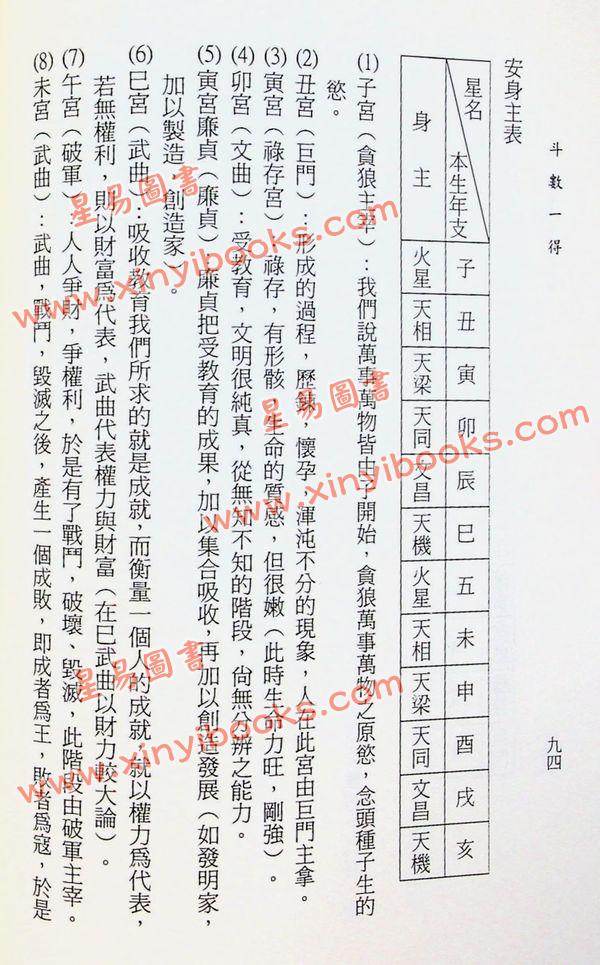 斗數一得
九四
安身主表
星名 本生年支 子 丑 寅 卯 辰 巳 五 未 申 酉 戌 亥
身主 火星 天相 天梁 天同 文昌 天機 火星 天相 天梁 天同 文昌 天機
(1)子宮（貪狼主宰）：我們說萬事萬物皆由子開始，貪狼萬事萬物之原慾，念頭種子生的
慾。
(2)丑宮（巨門）：形成的過程，歷鍊，懷孕，渾沌不分的現象，人在此宮由巨門主拿。
(3)寅宮（祿存宮）：祿存，有形骸，生命的質感，但很嫩（此時生命力旺，剛強）。
(4)卯宮（文曲）：受教育，文明很純真，從無知不知的階段，尙無分辨之能力。
(5)寅宮廉貞（廉貞）廉貞把受教育的成果，加以集合吸收，再加以創造發展（如發明家，
加以製造，創造家）。
(6)巳宮（武曲）：吸收教育我們所求的就是成就，而衡量一個人的成就，就以權力爲代表，
若無權利，則以財富爲代表，武曲代表權力與財富（在巳武曲以財力較大論）。
(7)午宮（破軍）人人爭財，爭權利，於是有了戰鬥，破壞、毀滅，此階段由破軍主宰。
(8)未宮（武曲）：武曲，戰鬥，毀滅之後，產生一個成敗，即成者爲王，敗者爲寇，於是
星易圖書
www.xinyibooks.com
星易圖書
www.xinyibooks.com
星易圖書
www.xinyibooks.com
星易圖書
www.xinyibooks.com